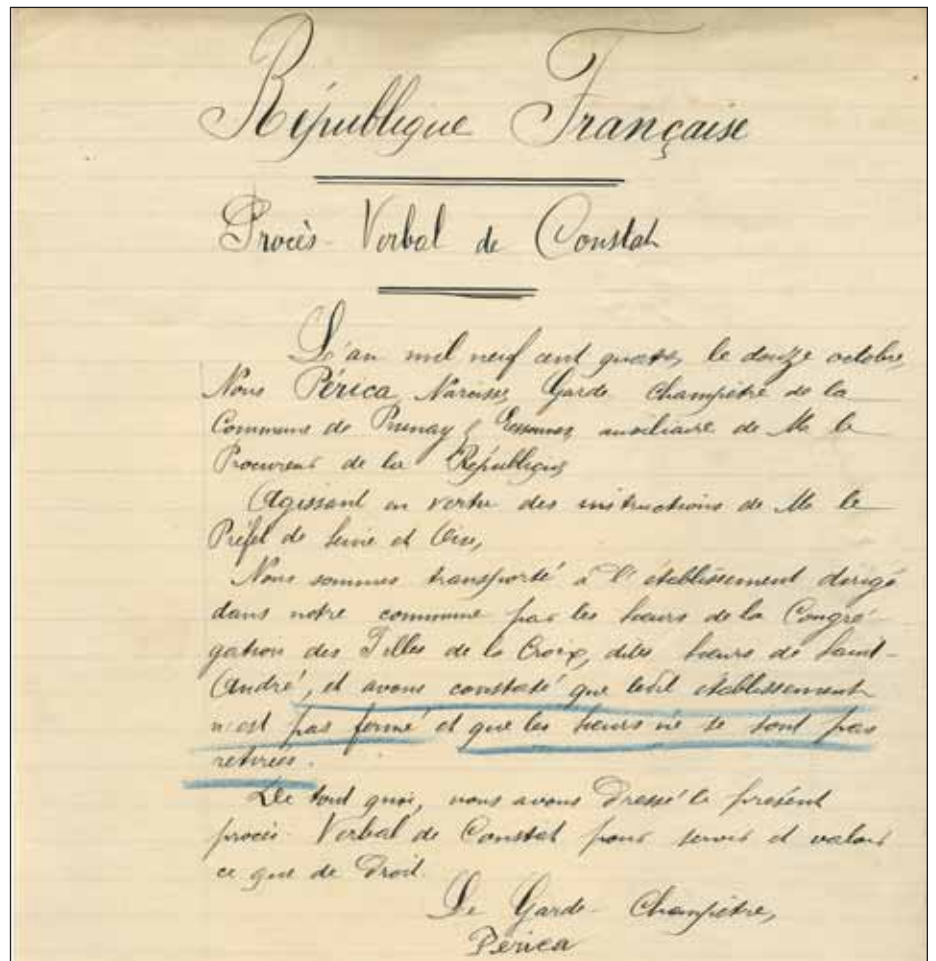 République Française
Procès-Verbal de Constat
L'an mil neuf cent quatre, le douze octobre,
Nous Périca, Narcisse, Garde Champêtre de la
Commune de Prunay s/ Essonnes, auxiliaire de Mr le
Procureur de la République,
Agissant en vertu des instructions de Mr le
Préfet de Seine et Oise,
Nous sommes transporté à l'établissement dirigé
dans notre commune par les Sœurs de la Congré-
gation des Filles de la Croix, dites Sœurs de Saint-
André, et avons constaté que ledit établissement
n'est pas fermé et que les Sœurs ne se sont pas
retirées.
De tout quoi, nous avons Dressé le présent
procès-Verbal de Constat pour servir et valoir
ce que de Droit.
Le Garde-Champêtre,
Périca